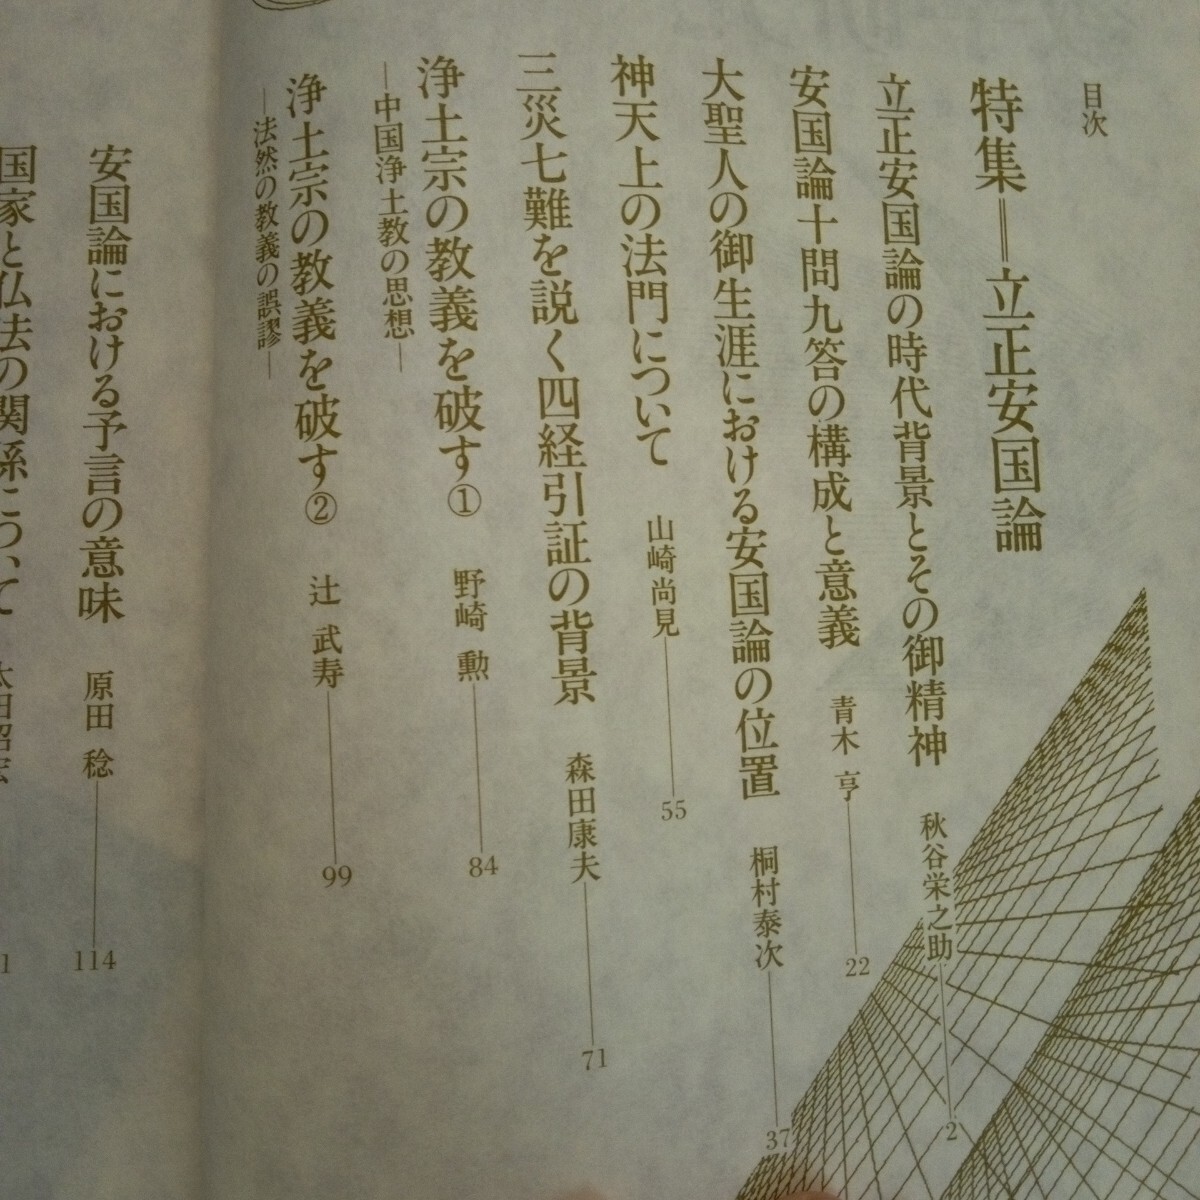 目次
特集＝立正安国論
立正安国論の時代背景とその御精神 秋谷栄之助 2
安国論十問九答の構成と意義 青木 亨 22
大聖人の御生涯における安国論の位置 桐村泰次 37
神天上の法門について 山崎尚見 55
三災七難を説く四経引証の背景 森田康夫 71
浄土宗の教義を破す① 野崎 勲 84
―中国浄土教の思想―
浄土宗の教義を破す② 辻 武寿 99
―法然の教義の誤謬―
安国論における予言の意味 原田 稔 114
国家と仏法の関係について 太田昭宏